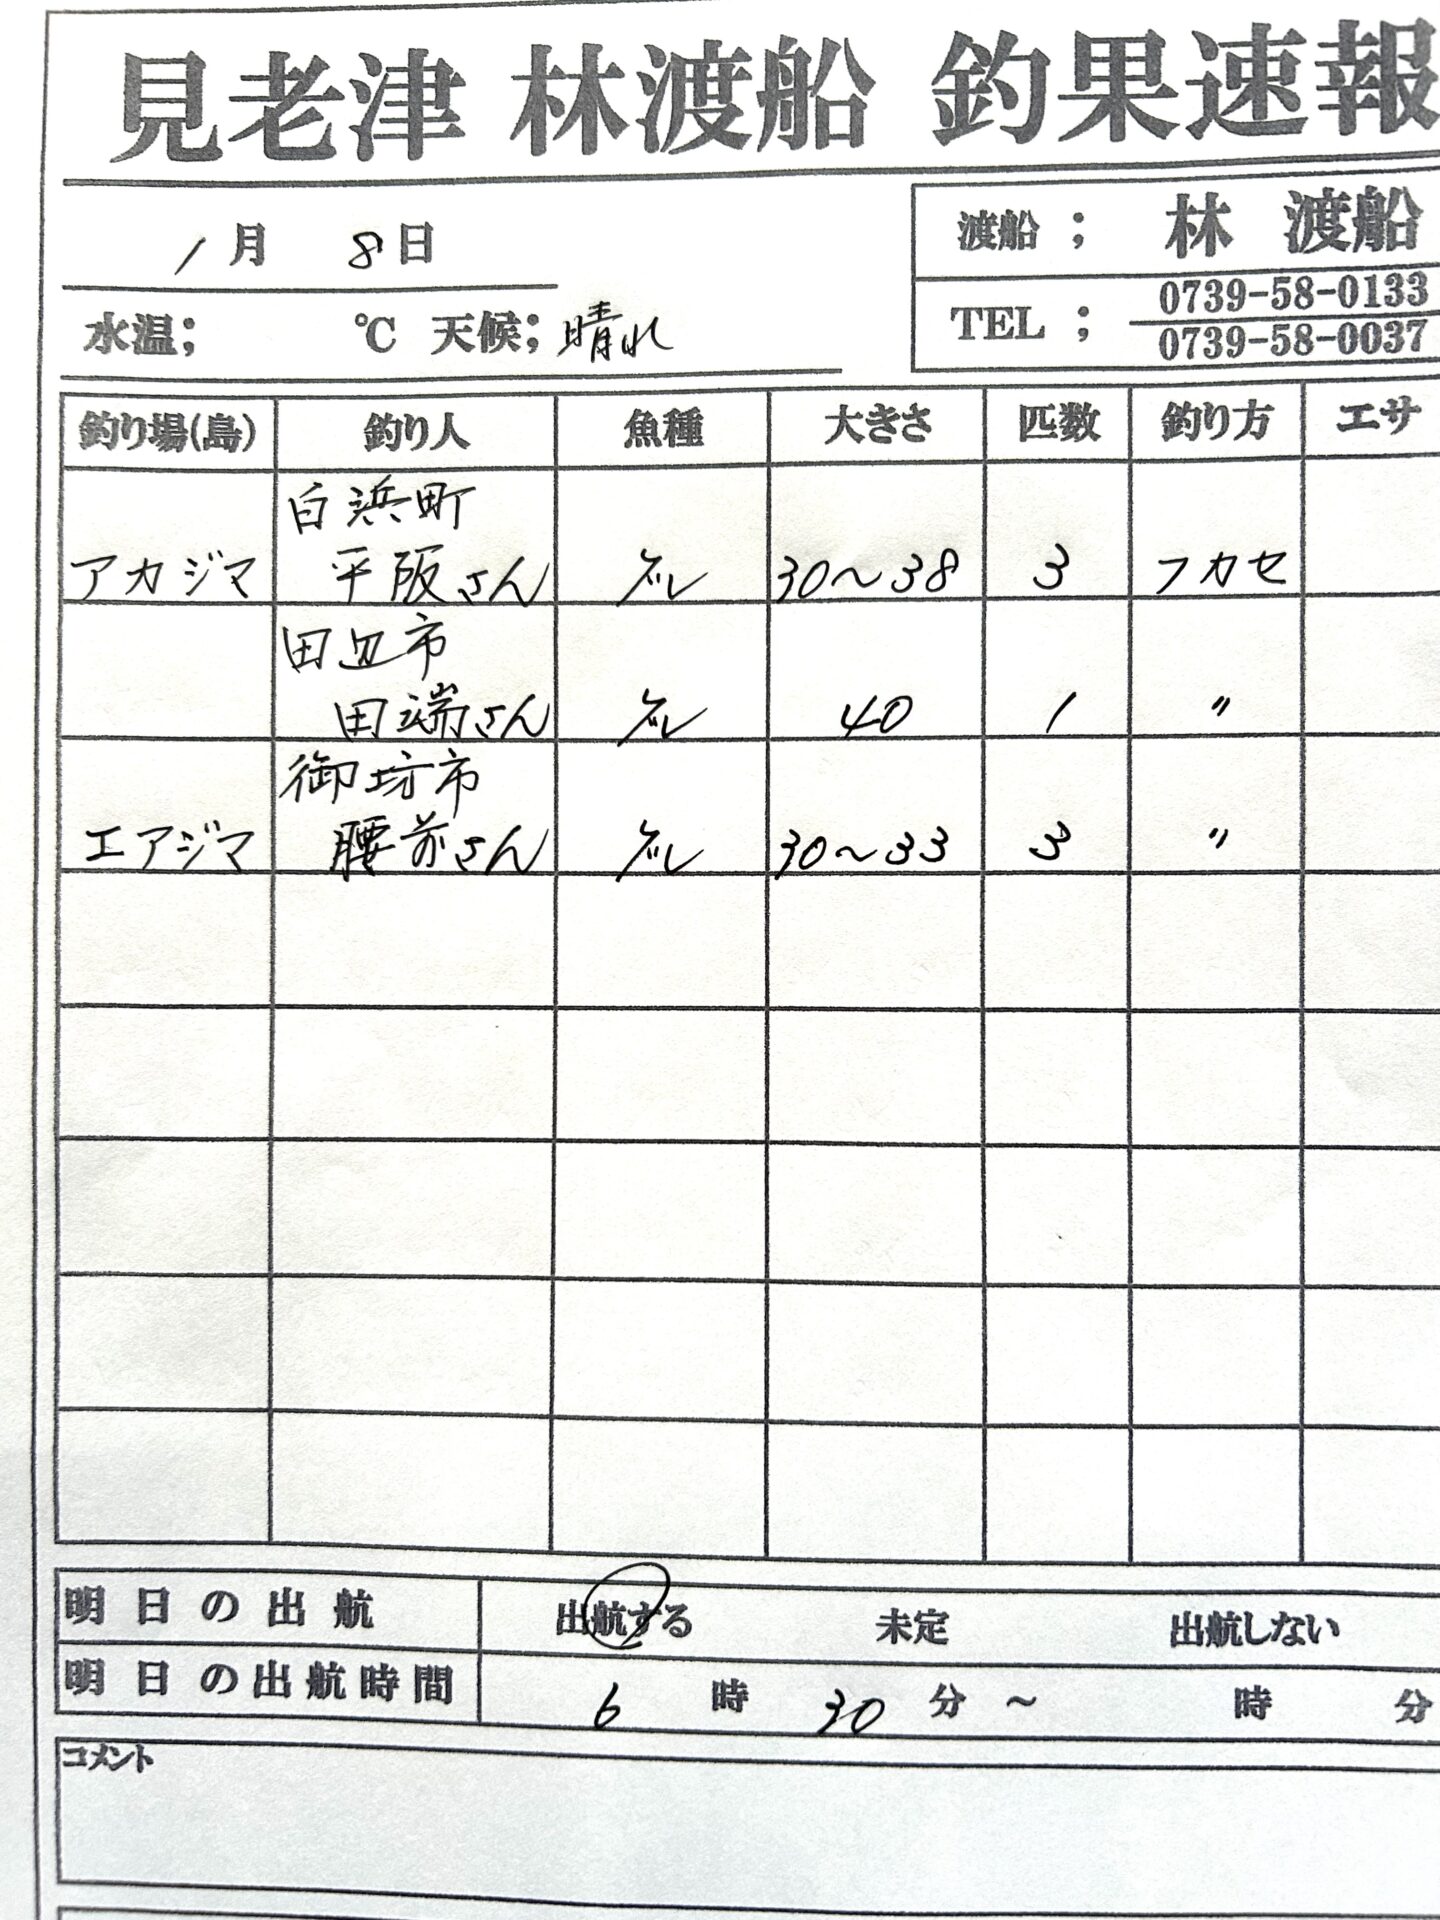 見老津 林渡船 釣果速報
1月 8日
渡船 ； 林 渡船
TEL ； 0739-58-0133
0739-58-0037
水温； ℃ 天候；晴れ
釣り場(島) 釣り人 魚種 大きさ 匹数 釣り方 エサ
白浜町
アカジマ 平阪さん グレ 30～38 3 フカセ
田辺市
田端さん グレ 40 1 〃
御坊市
エアジマ 腰前さん グレ 30～33 3 〃
明日の出航 出航する 未定 出航しない
明日の出航時間 6時 30分 ～ 時 分
コメント